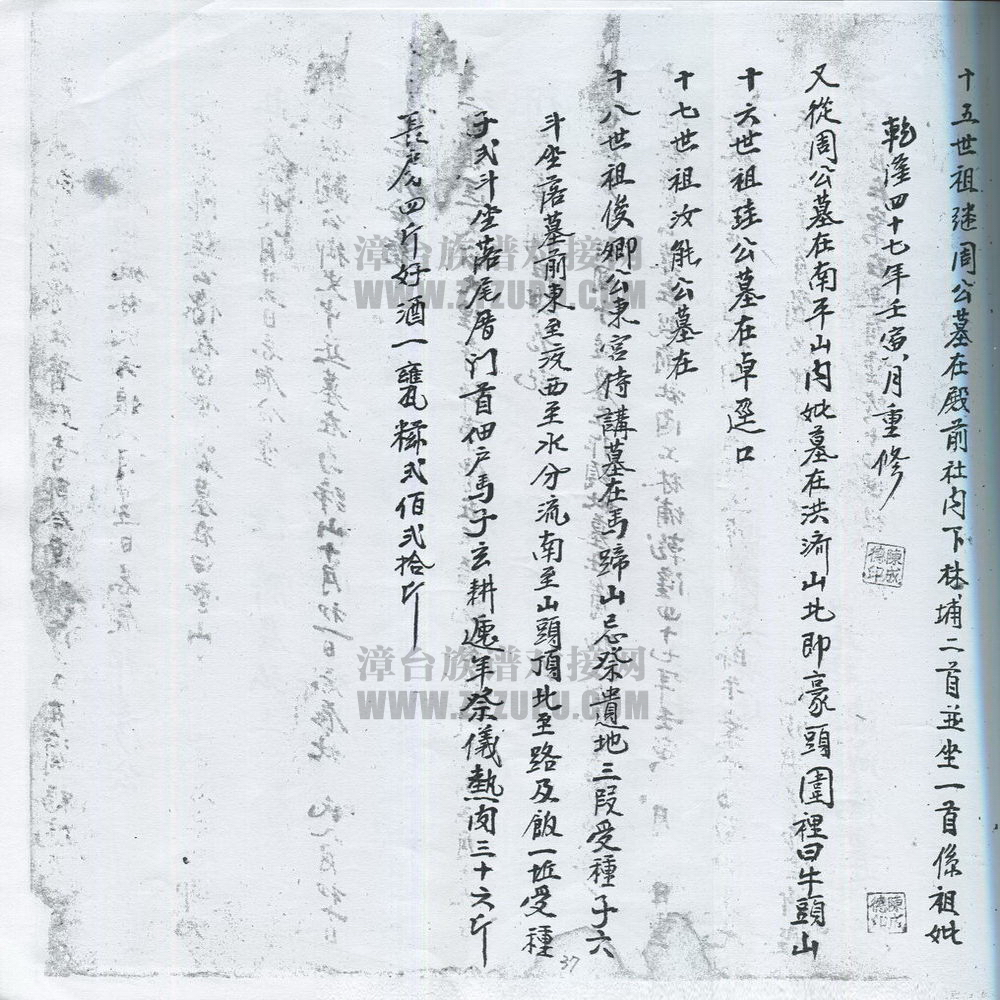 十五世祖继周公墓在殿前社内下林埔二首並坐一首係祖妣
乾隆四十七年壬寅八月重修
又從周公墓在南平山内妣墓在洪濟山北即豪頭圍裡曰牛頭山
十六世祖珪公墓在卓 口
十七世祖汝能公墓在
十八世祖俊卿公東宮侍講墓在馬蹄山忌祭遺地三段受種子六
斗坐落墓前東至 西至水分流南至山頭頂北至路及飯一坵受種
子弍斗坐落尾厝门首佃户馬子玄耕遞年祭儀熱肉三十六斤
長 四斤好酒一甕 弍佰弍拾斤
陳成德印
陳成德印
漳台族谱对接网
WWW.ZTZUPU.COM
漳台族谱对接网
WWW.ZTZUPU.COM
37